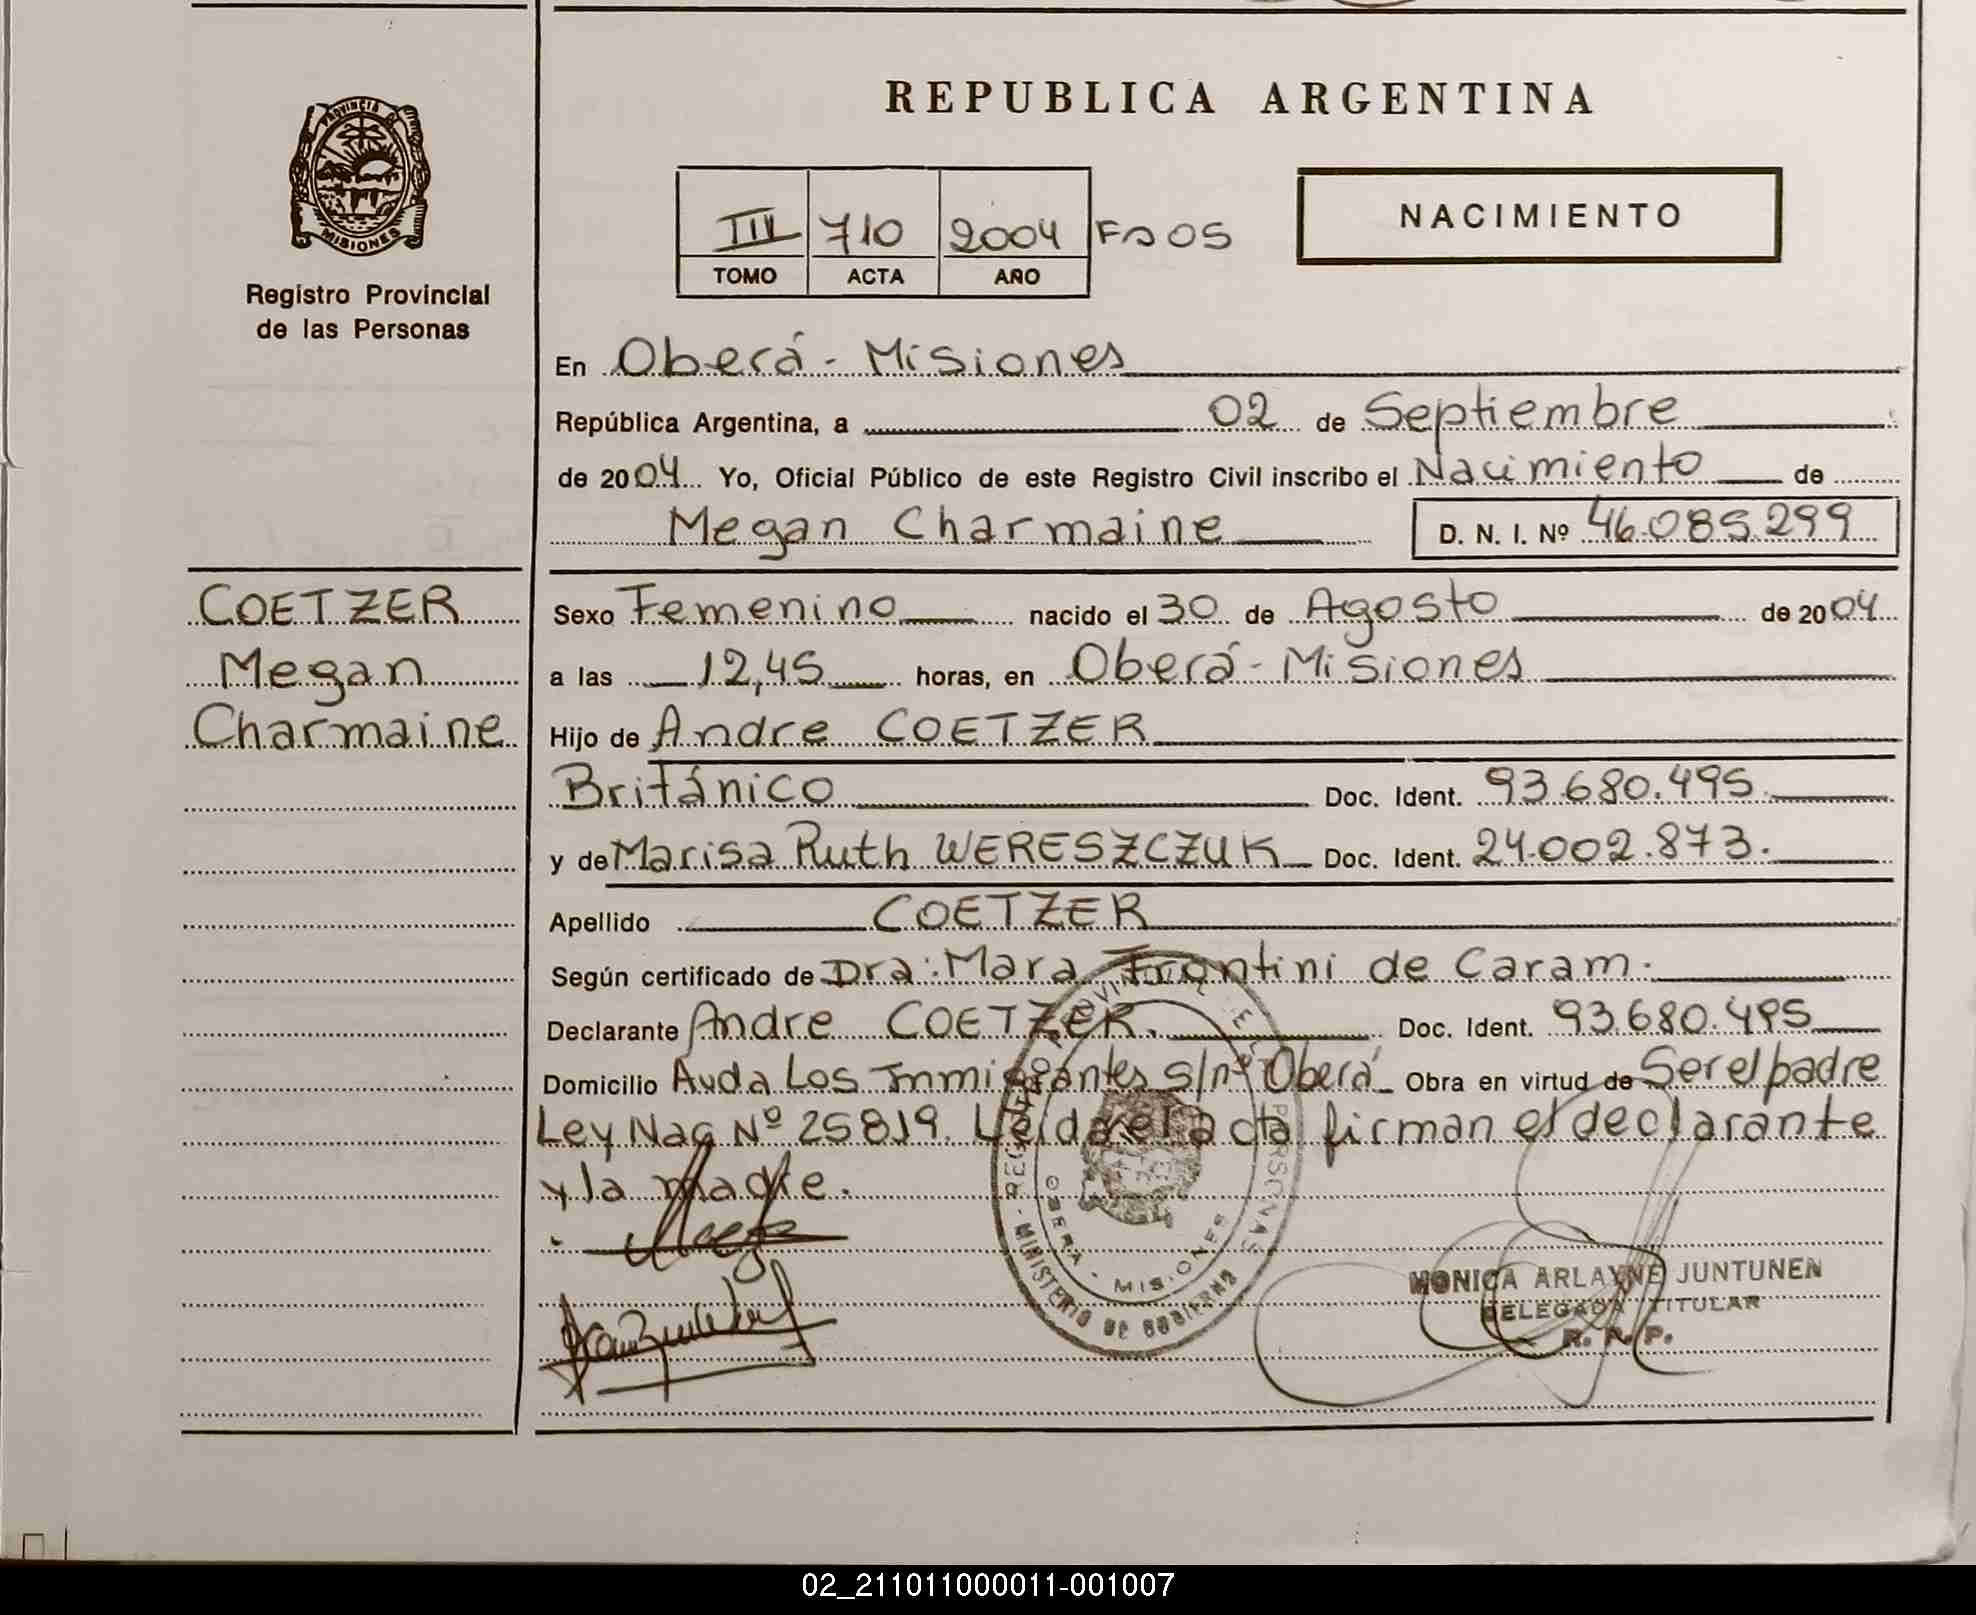 REPUBLICA ARGENTINA
PROVINCIA DE
MISIONES
Registro Provincial
de las Personas
III 710 2004 Fº 05
TOMO ACTA AÑO
NACIMIENTO
En Oberá - Misiones
República Argentina, a 02 de Septiembre
de 2004 Yo, Oficial Público de este Registro Civil inscribo el Nacimiento de
Megan Charmaine D. N. I. Nº 46.085.299
COETZER
Megan
Charmaine
Sexo Femenino nacido el 30 de Agosto de 2004
a las 12,45 horas, en Oberá - Misiones
Hijo de Andre COETZER
Británico Doc. Ident. 93.680.495.
y de Marisa Ruth WERESZCZUK Doc. Ident. 24.002.873.
Apellido COETZER
Según certificado de Dra: Mara Frontini de Caram.
Declarante Andre COETZER. Doc. Ident. 93.680.495
Domicilio Avda Los Inmigrantes s/nº Oberá Obra en virtud de Ser el padre
Ley Nac Nº 25819. Leída el acta firman el declarante
y la madre.
OBERA - MISIONES
MINISTERIO DE GOBIERNO
PERSONAS
MONICA ARLAYNE JUNTUNEN
DELEGADA TITULAR
R. P. P.
02_211011000011-001007